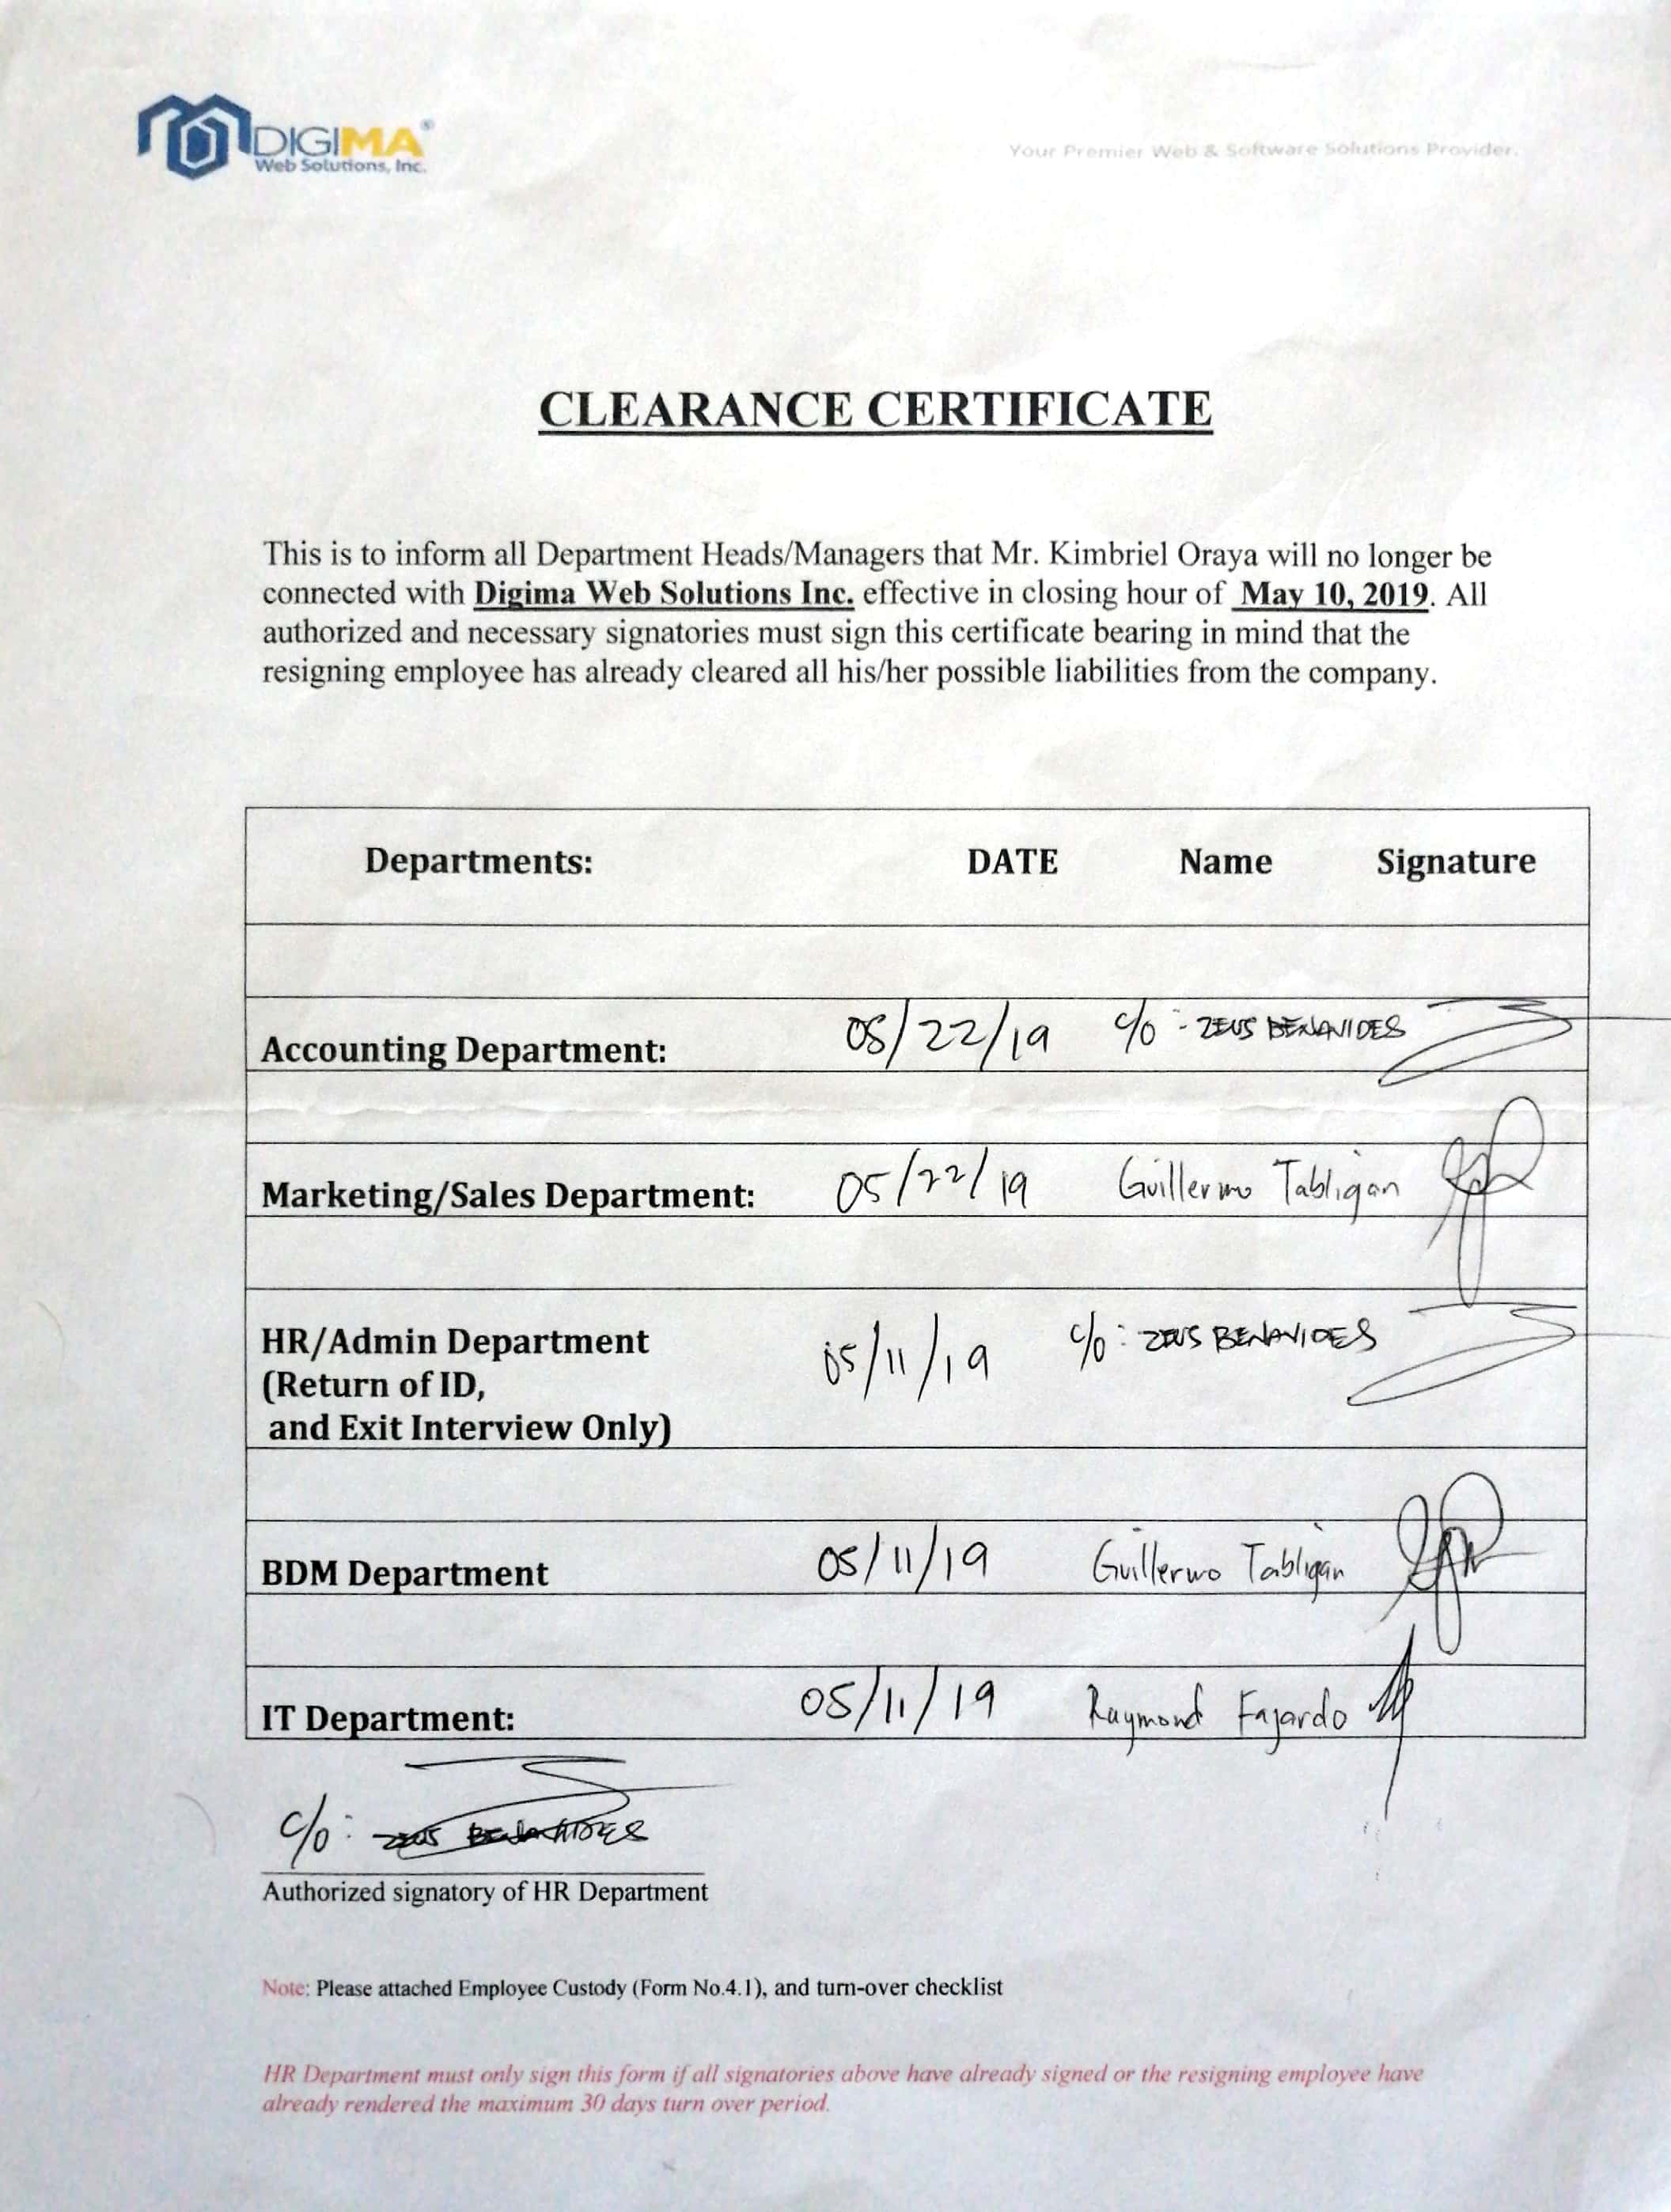 DIGIMA®
Web Solutions, Inc.
Your Premier Web & Software Solutions Provider.
CLEARANCE CERTIFICATE
This is to inform all Department Heads/Managers that Mr. Kimbriel Oraya will no longer be
connected with Digima Web Solutions Inc. effective in closing hour of May 10, 2019. All
authorized and necessary signatories must sign this certificate bearing in mind that the
resigning employee has already cleared all his/her possible liabilities from the company.
Departments: DATE Name Signature
Accounting Department: 05/22/19 c/o - ZEUS BENAVIDES
Marketing/Sales Department: 05/22/19 Guillermo Tabligan
HR/Admin Department 05/11/19 c/o: ZEUS BENAVIDES
(Return of ID,
and Exit Interview Only)
BDM Department 05/11/19 Guillermo Tabligan
IT Department: 05/11/19 Raymond Fajardo
c/o: ZEUS BENAVIDES
Authorized signatory of HR Department
Note: Please attached Employee Custody (Form No.4.1), and turn-over checklist
HR Department must only sign this form if all signatories above have already signed or the resigning employee have
already rendered the maximum 30 days turn over period.